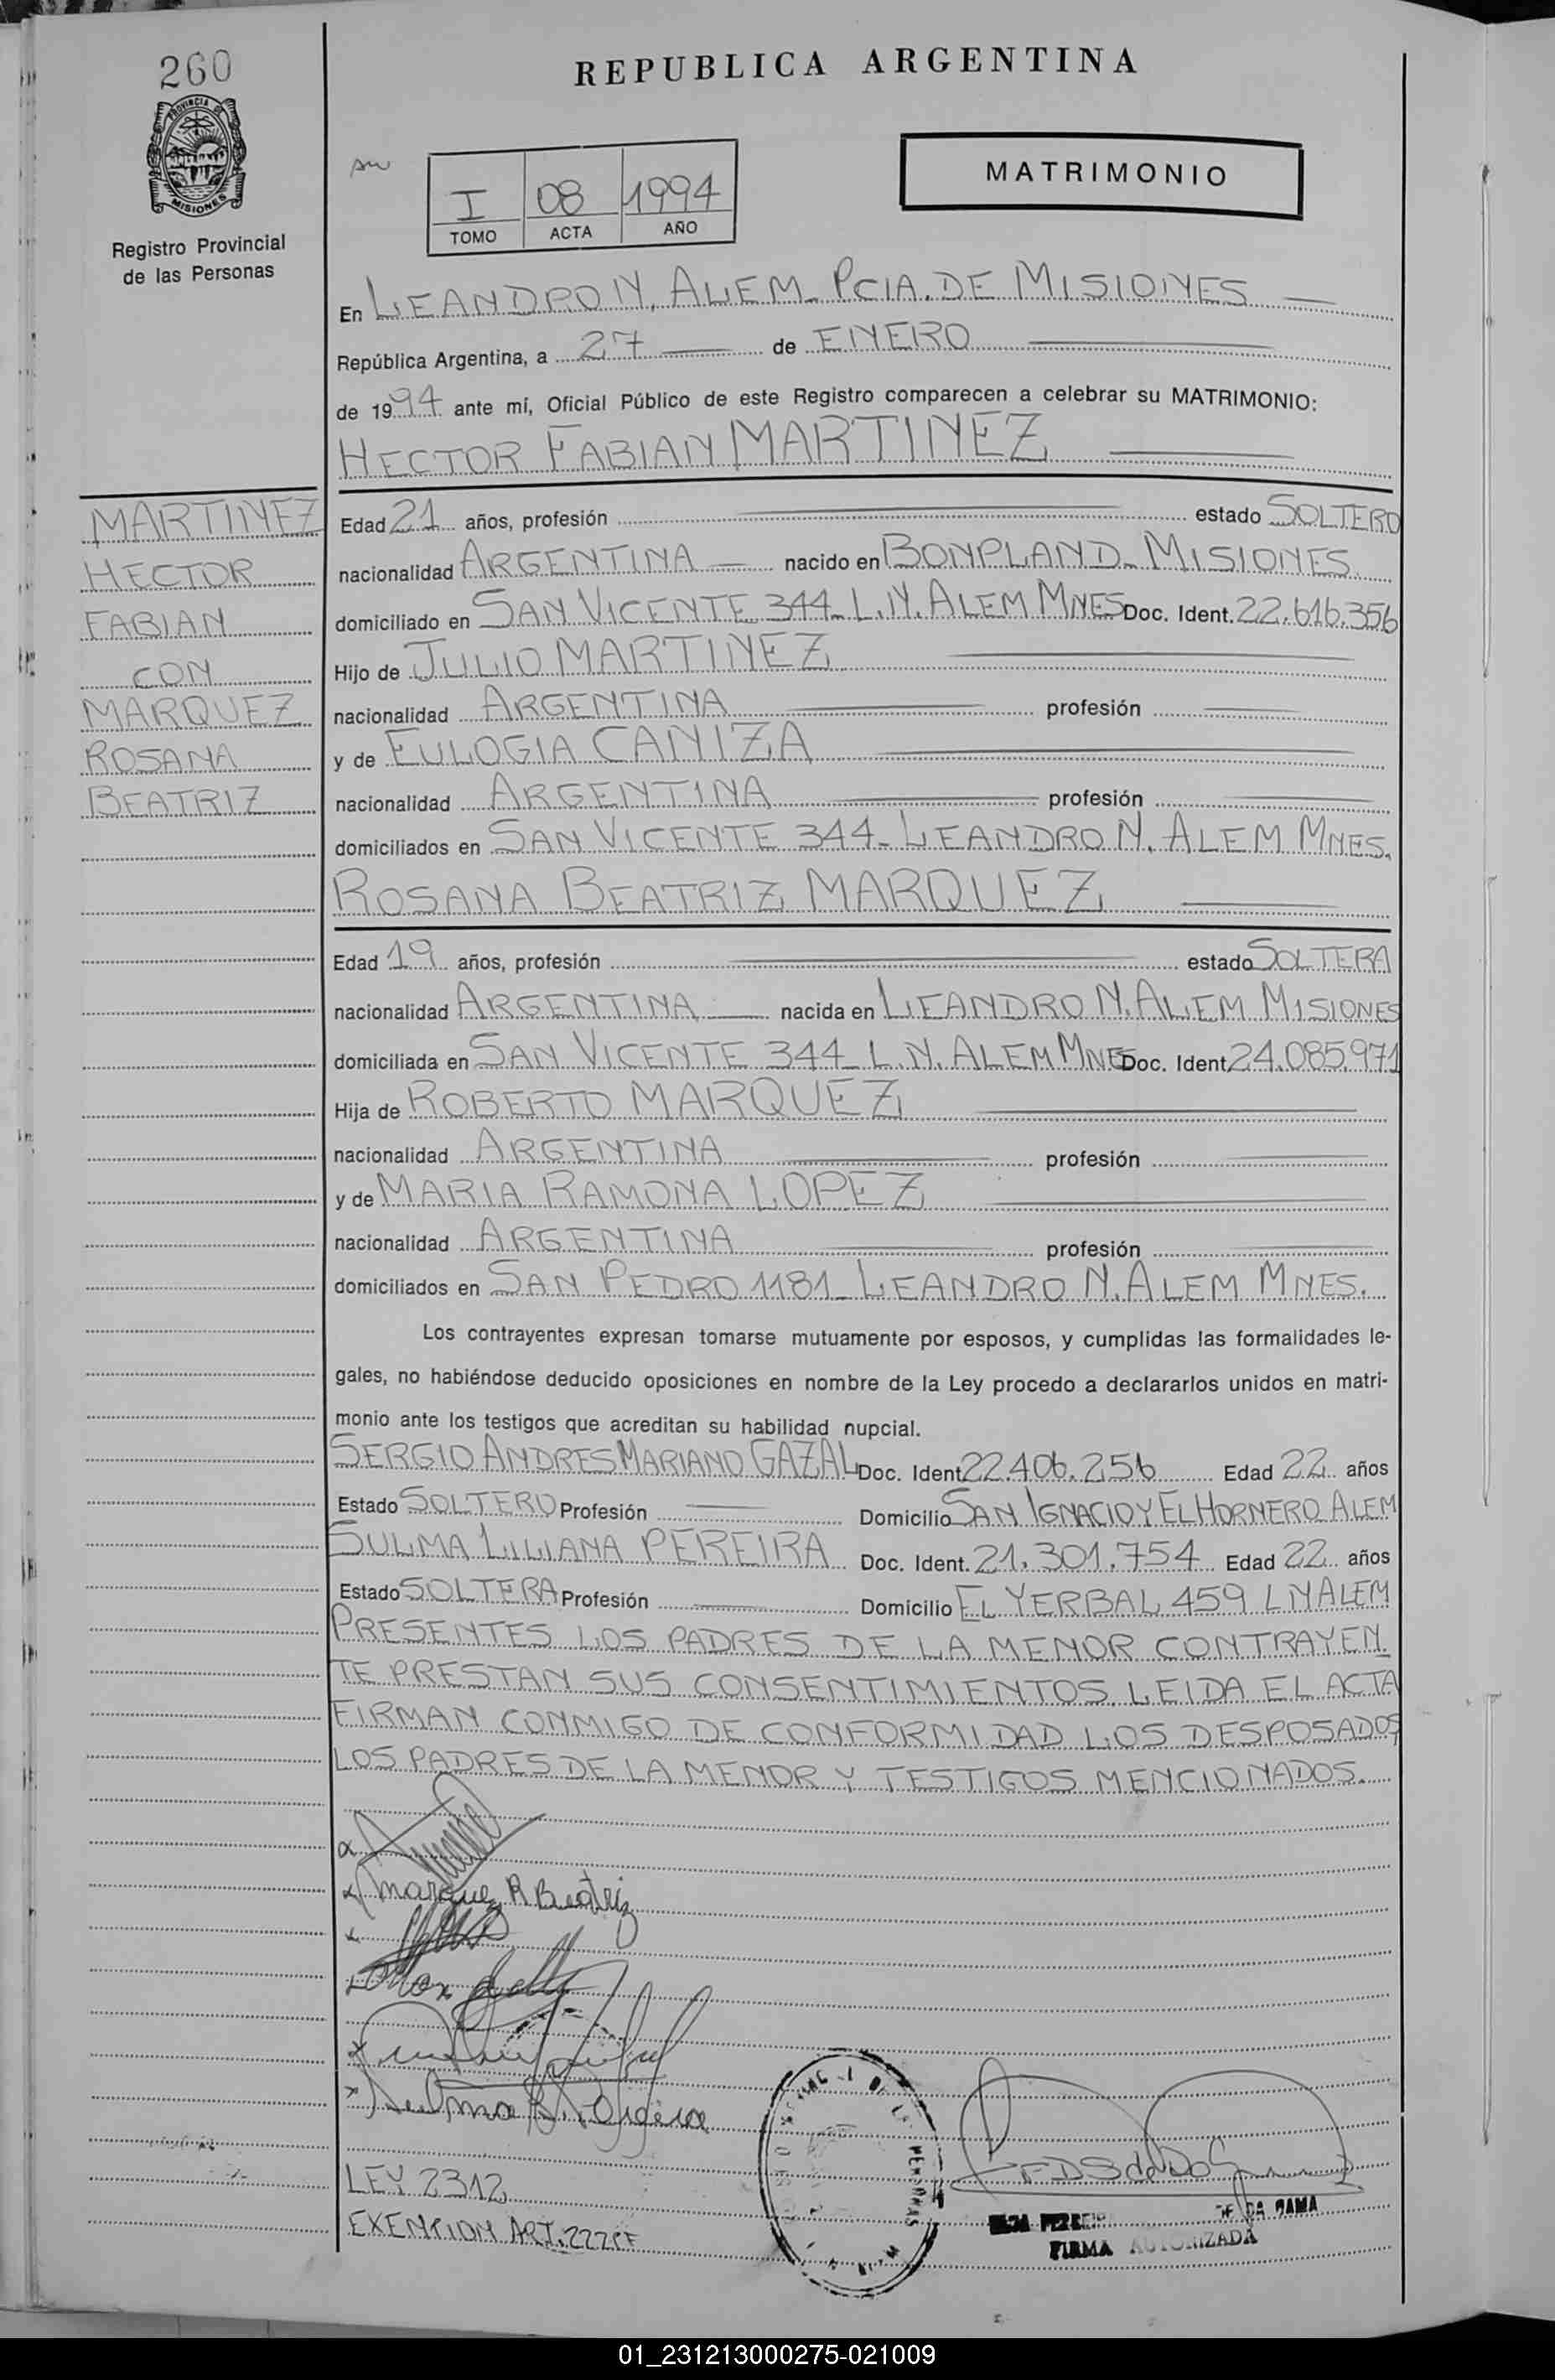 260
REPUBLICA ARGENTINA
PROVINCIA DE MISIONES
Registro Provincial
de las Personas
I 08 1994
TOMO ACTA AÑO
MATRIMONIO
En LEANDRO N. ALEM - PCIA. DE MISIONES
República Argentina, a 27 de ENERO
de 1994 ante mí, Oficial Público de este Registro comparecen a celebrar su MATRIMONIO:
HECTOR FABIAN MARTINEZ
MARTINEZ
HECTOR
FABIAN
CON
MARQUEZ
ROSANA
BEATRIZ
Edad 21 años, profesión estado SOLTERO
nacionalidad ARGENTINA nacido en BONPLAND - MISIONES.
domiciliado en SAN VICENTE 344 - L.N. ALEM MNES Doc. Ident. 22.616.356
Hijo de JULIO MARTINEZ
nacionalidad ARGENTINA profesión
y de EULOGIA CANIZA
nacionalidad ARGENTINA profesión
domiciliados en SAN VICENTE 344 - LEANDRO N. ALEM MNES.
ROSANA BEATRIZ MARQUEZ
Edad 19 años, profesión estado SOLTERA
nacionalidad ARGENTINA nacida en LEANDRO N. ALEM MISIONES
domiciliada en SAN VICENTE 344 - L.N. ALEM MNES Doc. Ident. 24.085.971
Hija de ROBERTO MARQUEZ
nacionalidad ARGENTINA profesión
y de MARIA RAMONA LOPEZ
nacionalidad ARGENTINA profesión
domiciliados en SAN PEDRO 1181 - LEANDRO N. ALEM MNES.
Los contrayentes expresan tomarse mutuamente por esposos, y cumplidas las formalidades le-
gales, no habiéndose deducido oposiciones en nombre de la Ley procedo a declararlos unidos en matri-
monio ante los testigos que acreditan su habilidad nupcial.
SERGIO ANDRES MARIANO GAZAL Doc. Ident. 22.406.256 Edad 22 años
Estado SOLTERO Profesión Domicilio SAN IGNACIO Y EL HORNERO ALEM
SULMA LILIANA PEREIRA Doc. Ident. 21.301.754 Edad 22 años
Estado SOLTERA Profesión Domicilio EL YERBAL 459 L N ALEM
PRESENTES LOS PADRES DE LA MENOR CONTRAYEN-
TE PRESTAN SUS CONSENTIMIENTOS. LEIDA EL ACTA
FIRMAN CONMIGO DE CONFORMIDAD LOS DESPOSADOS,
LOS PADRES DE LA MENOR Y TESTIGOS MENCIONADOS.
Marquez R Beatriz
LEY 2312
EXENCION ART. 222 CF
DE DA GAMA
FIRMA AUTORIZADA
01_231213000275-021009